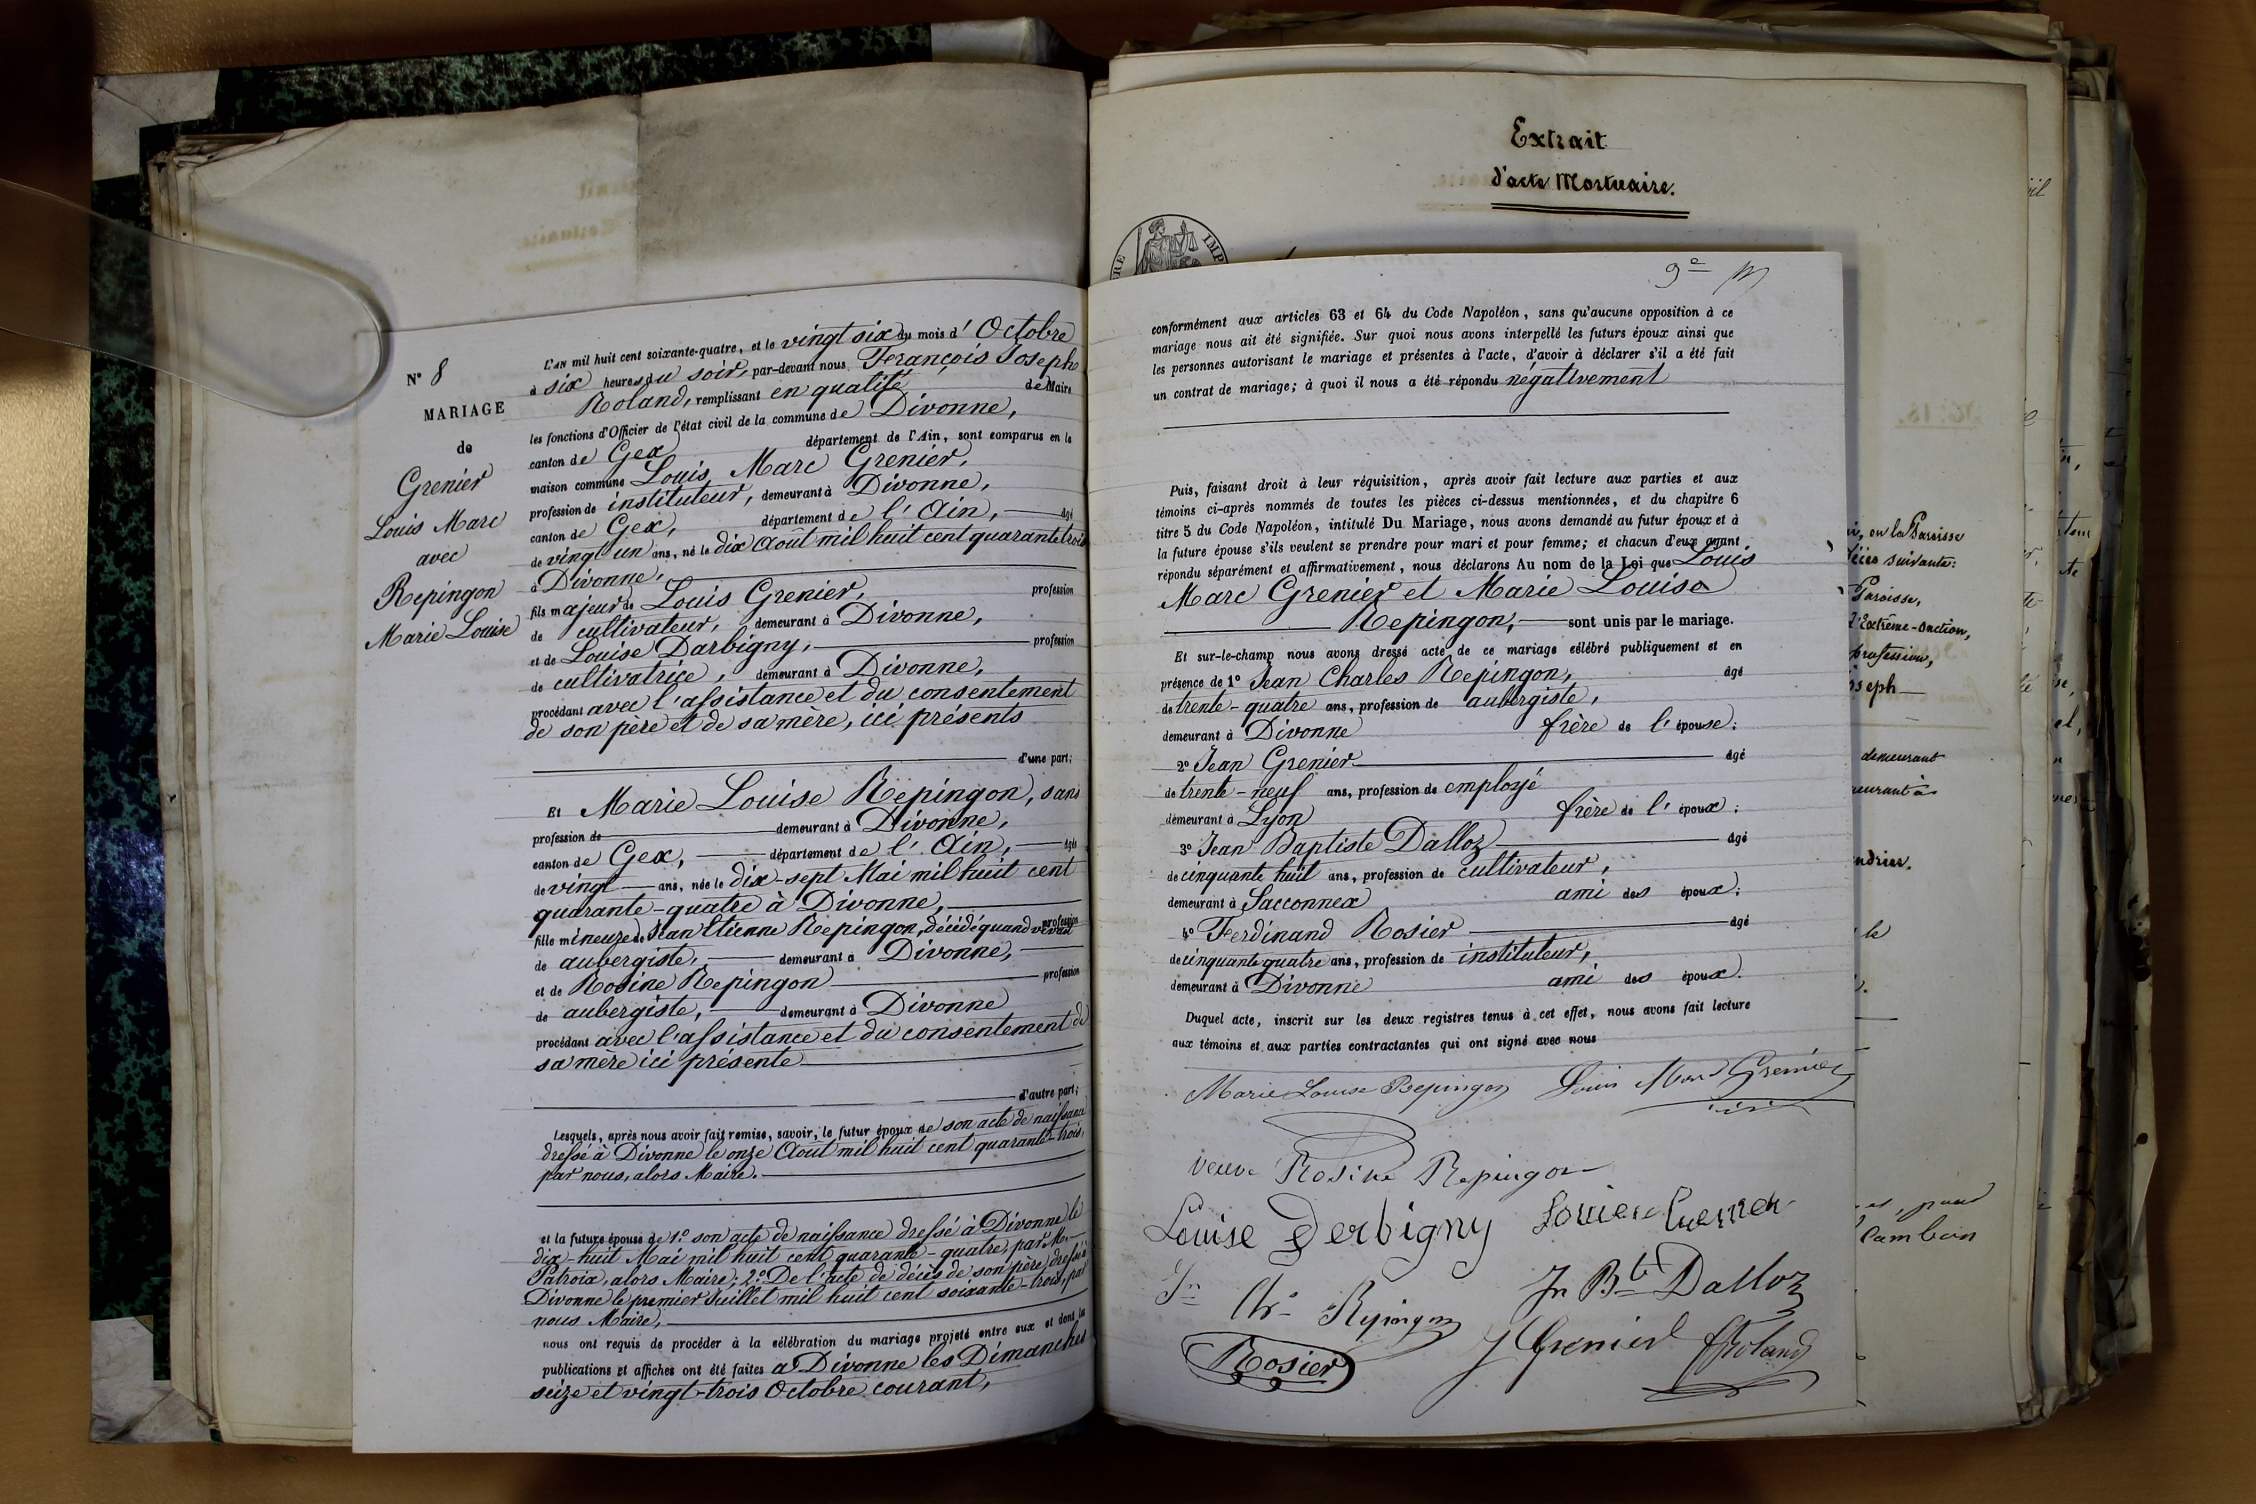 N° 8
MARIAGE
de
Grenier
Louis Marc
avec
Repingon
Marie Louise
L'AN mil huit cent soixante-quatre, et le vingt six du mois d'Octobre
à six heures du soir, par-devant nous François Joseph
Roland, remplissant en qualité de Maire
les fonctions d'Officier de l'état civil de la commune de Divonne,
canton de Gex département de l'Ain, sont comparus en la
maison commune Louis Marc Grenier,
profession de instituteur, demeurant à Divonne,
canton de Gex, département de l'Ain, âgé
de vingt un ans, né le dix Août mil huit cent quarante trois
à Divonne,
fils majeur de Louis Grenier, profession
de cultivateur, demeurant à Divonne,
et de Louise Darbigny, profession
de cultivatrice, demeurant à Divonne,
procédant avec l'assistance et du consentement
de son père et de sa mère, ici présents
d'une part;
Et Marie Louise Repingon, sans
profession de demeurant à Divonne,
canton de Gex, département de l'Ain, âgée
de vingt ans, née le dix-sept Mai mil huit cent
quarante-quatre à Divonne,
fille mineure de Jean Etienne Repingon, décédé quand vivait profession
de aubergiste, demeurant à Divonne,
et de Rosine Repingon profession
de aubergiste, demeurant à Divonne
procédant avec l'assistance et du consentement de
sa mère ici présente
d'autre part;
Lesquels, après nous avoir fait remise, savoir, le futur époux de son acte de naissance
dressé à Divonne le onze Août mil huit cent quarante-trois,
par nous, alors Maire.
et la future épouse de 1° son acte de naissance dressé à Divonne le
dix-huit Mai mil huit cent quarante-quatre, par Mr
Patroix, alors Maire; 2° De l'acte de décès de son père, dressé à
Divonne le premier Juillet mil huit cent soixante-trois, par
nous Maire,
nous ont requis de procéder à la célébration du mariage projeté entre eux et dont les
publications et affiches ont été faites à Divonne les Dimanches
seize et vingt-trois Octobre courant,
Extrait
d'acte Mortuaire.
9e
conformément aux articles 63 et 64 du Code Napoléon, sans qu'aucune opposition à ce
mariage nous ait été signifiée. Sur quoi nous avons interpellé les futurs époux ainsi que
les personnes autorisant le mariage et présentes à l'acte, d'avoir à déclarer s'il a été fait
un contrat de mariage; à quoi il nous a été répondu négativement
Puis, faisant droit à leur réquisition, après avoir fait lecture aux parties et aux
témoins ci-après nommés de toutes les pièces ci-dessus mentionnées, et du chapitre 6
titre 5 du Code Napoléon, intitulé Du Mariage, nous avons demandé au futur époux et à
la future épouse s'ils veulent se prendre pour mari et pour femme; et chacun d'eux ayant
répondu séparément et affirmativement, nous déclarons Au nom de la Loi que Louis
Marc Grenier et Marie Louise
Repingon, sont unis par le mariage.
Et sur-le-champ nous avons dressé acte de ce mariage célébré publiquement et en
présence de 1° Jean Charles Repingon, âgé
de trente-quatre ans, profession de aubergiste,
demeurant à Divonne frère de l'épouse;
2° Jean Grenier âgé
de trente-neuf ans, profession de employé
demeurant à Lyon frère de l'époux;
3° Jean Baptiste Dalloz âgé
de cinquante huit ans, profession de cultivateur,
demeurant à Sacconnex ami des époux;
4° Ferdinand Rosier âgé
de cinquante quatre ans, profession de instituteur,
demeurant à Divonne ami des époux.
Duquel acte, inscrit sur les deux registres tenus à cet effet, nous avons fait lecture
aux témoins et aux parties contractantes qui ont signé avec nous
Marie Louise Repingon Louis Marc Grenier
veuve Rosine Repingon
Louise Derbigny Louis Grenier
Jn Chs Repingon Jn Bte Dalloz
Rosier J Grenier Roland
en la Paroisse
suivante:
Paroisse,
l'Extrême-Onction,
profession,
demeurant